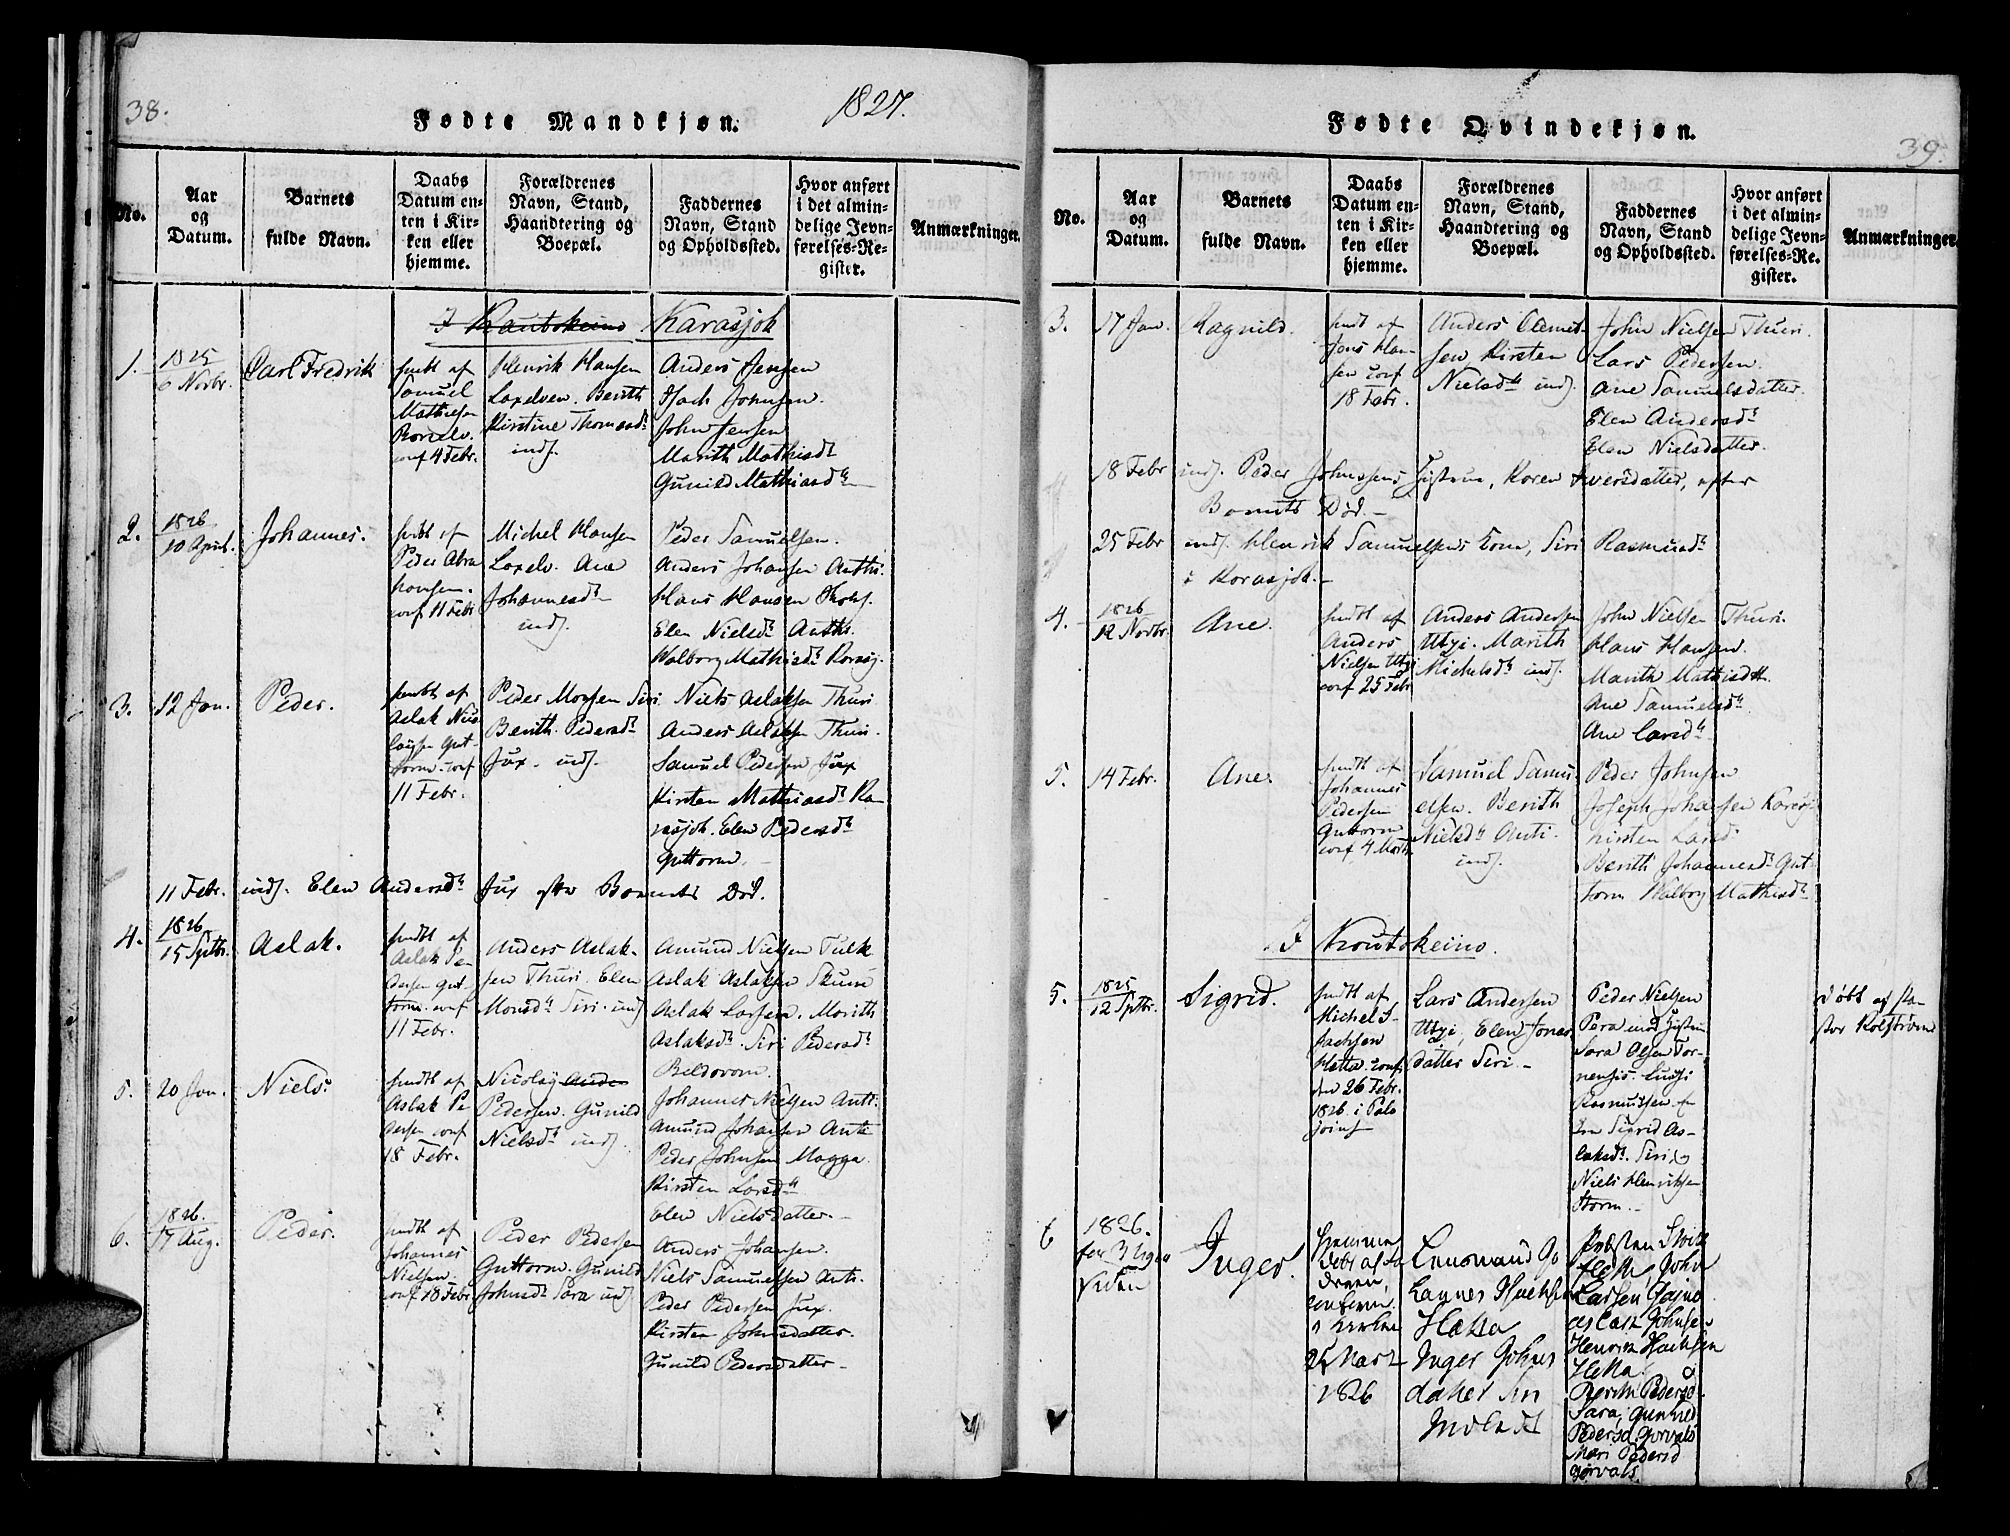 38.
Fødte Mandkjøn.
1827.
No.
Aar
og
Datum.
Barnets
fulde Navn.
Daabs
Datum en-
ten i Kir-
ken eller
hjemme.
Forældrenes
Navn, Stand,
Haandtering og
Boepæl.
Faddernes
Navn, Stand
og Opholdssted.
Hvor anført
i det almin-
delige Jevn-
førelses-Re-
gister.
Anmærkninger.
I Kautokeino Karasjok
1.
1825
6 Novbr.
Carl Fredrik
hmdt af
Samuel
Mathiesen
conf 4 Febr.
Henrik Hansen
Laxelven. Berith
Kirstine Thomasd.
inds.
Anders Jensen
Isach Johnsen.
John Jensen
Marith Mathisd
Gunild Mathiasd
2.
1826
10 April.
Johannes.
hmdt af
Peder Abra
hamsen.
conf. 11 Febr
Michel Hansen
Laxelv. Ane
Johannesd
inds.
Peder Samuelsen.
Anders Johansen Anthi.
Hans Hansen
Elen Nielsd Anthi.
Walborg Mathisd Karasj.
3.
12 Jan.
Peder.
hmdt af
Aslak Niko
laysen Gut-
torm. conf
11 Febr.
Peder Monsen Siri
Berith Pedersd
Jux. inds.
Niels Aslaksen Thuri
Anders Aslaksen Thuri.
Samuel Pedersen Jux
Kirsten Mathiasd Ka
rasjok. Elen Pedersd
Guttorm.
11 Febr. inds. Elen Andersd Jux efter Barnets Død.
4.
1826
15 Sptbr.
Aslak.
hmdt af
Aslak Pe-
dersen Gut-
torm. conf
11 Febr.
Anders Aslak-
sen Thuri. Elen
Monsd Siri. inds
Amund Nielsen Tulk
Aslak Aslaksen
Aslak Larsen. Marith
Aslaksd Siri Pedersd
5.
20 Jan.
Niels
hmdt af
Aslak Pe
dersen conf
18 Febr.
Nicolay Ande
Pedersen. Gunild
Nielsd inds.
Johannes Nielsen Anti.
Amund Johansen Anti
Peder Johnsen Magga.
Kirsten Larsd
Elen Nielsdatter.
6.
1826.
17 Aug.
Peder.
hmdt af
Johannes
Nielsen
conf 18 Febr.
Peder Pedersen
Guttorm. Gunild
Johnsd Sara inds
Anders Johansen.
Niels Samuelsen Anti.
Peder Pedersen Jux.
Kirsten Johnsdatter.
Gunild Pedersdatter
Fødte Qvindekjøn.
39.
No.
Aar
og
Datum.
Barnets
fulde Navn.
Daabs
Datum en-
ten i Kir-
ken eller
hjemme.
Forældrenes
Navn, Stand,
Haandtering og
Boepæl.
Faddernes
Navn, Stand
og Opholdssted.
Hvor anført
i det almin-
delige Jevn-
førelses-Re-
gister.
Anmærkninger.
3.
17 Jan.
Ragnild.
hmdt af
Jens Han-
sen conf
18 Febr.
Anders Clemet-
sen Kirsten
Nielsd inds.
John Nielsen Thuri.
Lars Pedersen.
Ane Samuelsdatter.
Elen Andersd
Elen Nielsdatter.
18 Febr inds. Peder Johnssens Hustrue, Karen Iversdatter, efter
Barnets Død.
25 Febr inds. Henrik Samuelsens Kone, Siri Rasmusd
i Karasjok.
4.
1826
12 Novbr.
Ane.
hmdt af
Anders
Nielsen Utsi
conf 25 Febr
Anders Andersen
Utsi. Marith
Michelsd inds.
John Nielsen Thuri.
Hans Hansen.
Marith Mathisd
Ane Samuelsd
Ane Larsd
5.
14 Febr.
Ane.
hmdt af
Johannes
Pedersen
Guttorm
conf 4 Marts
Samuel Samu
elsen. Berith
Nielsd Anti.
inds.
Peder Johnsen
Joseph Johansen Karasj.
Kirsten Larsd
Berith Johannesd Gut
torm Walborg Mathisd
I Koutokeino.
5.
1825
12 Sptbr.
Sigrid.
hmdt af
Michel I-
sachsen
Hætta. conf.
den 26 Febr.
1826. i Palo
Lars Andersen
Utsi, Elen Jonas
datter Siri.
Peder Nielsen
Pera med Hustru
Sara Olsen Tor-
nensis.
Rasmussen.
Sigrid As-
laksd. Siri, og
Niels Henriksen
Storm.
Døbt af Pa-
stor Kolstrøm
6
1826.
for 3 Uger
siden
Inger.
hjemme
debt af Fa
deren,
conferm.
i kerken
25 Mart
1826
Lensmand Jo
hannes Isachsen
Hætta
Inger Johns
datter Siri
Præsten
fleth, John
Larsen Gaino
Aslak Johnsen
Henrik Isachsen
Hetta.
Berith Pedersd
Sara, Gunhild
Pedersd. Gorvals
Mari Pedersd
Gorvals.